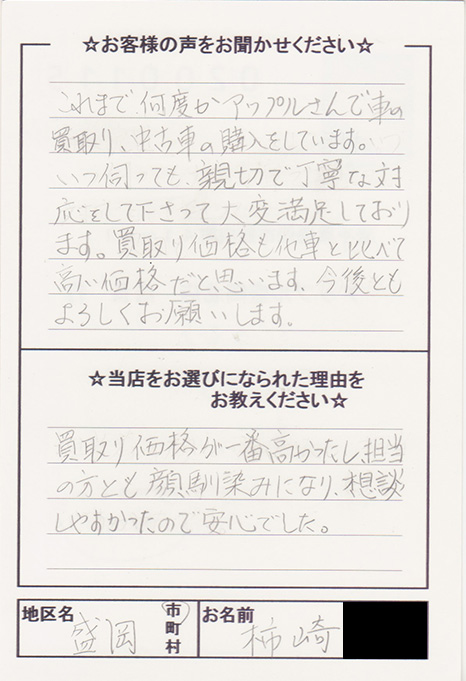 ☆お客様の声をお聞かせください☆
これまで何度かアップルさんで車の
買取り、中古車の購入をしています。
いつ伺っても、親切で丁寧な対
応をして下さって大変満足しており
ます。買取り価格も他車と比べて
高い価格だと思います、今後とも
よろしくお願いします。
☆当店をお選びになられた理由を
お教えください☆
買取り価格が一番高かったし、担当
の方とも顔馴染みになり、相談
しやすかったので安心でした。
地区名 盛岡 市町村 お名前 柿崎